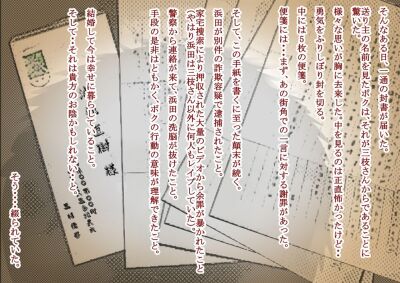 そんなある日、一通の封書が届いた。
送り主の名前を見たボクは、それが三枝さんからであることに
驚いた。
様々な思いが胸に去来した。中を見るのは正直怖かったけど…
勇気をふりしぼり封を切る。
中には5枚の便箋。
便箋には…まず、あの街角での一言に対する謝罪があった。
そして、この手紙を書くに至った顛末が続く。
浜田が別件の詐欺容疑で逮捕されたこと。
家宅捜索により押収された大量のビデオから余罪が暴かれたこと
(やはり浜田は三枝さん以外に何人もレイプしていた)。
警察から連絡が来て、浜田の洗脳が抜けたこと。
手段の是非はともかく、ボクの行動の意味が理解できたこと。
結婚して今は幸せに暮らしていること。
そして…それは貴方のお陰かもしれないこと。
そう…綴られていた。
直樹 様